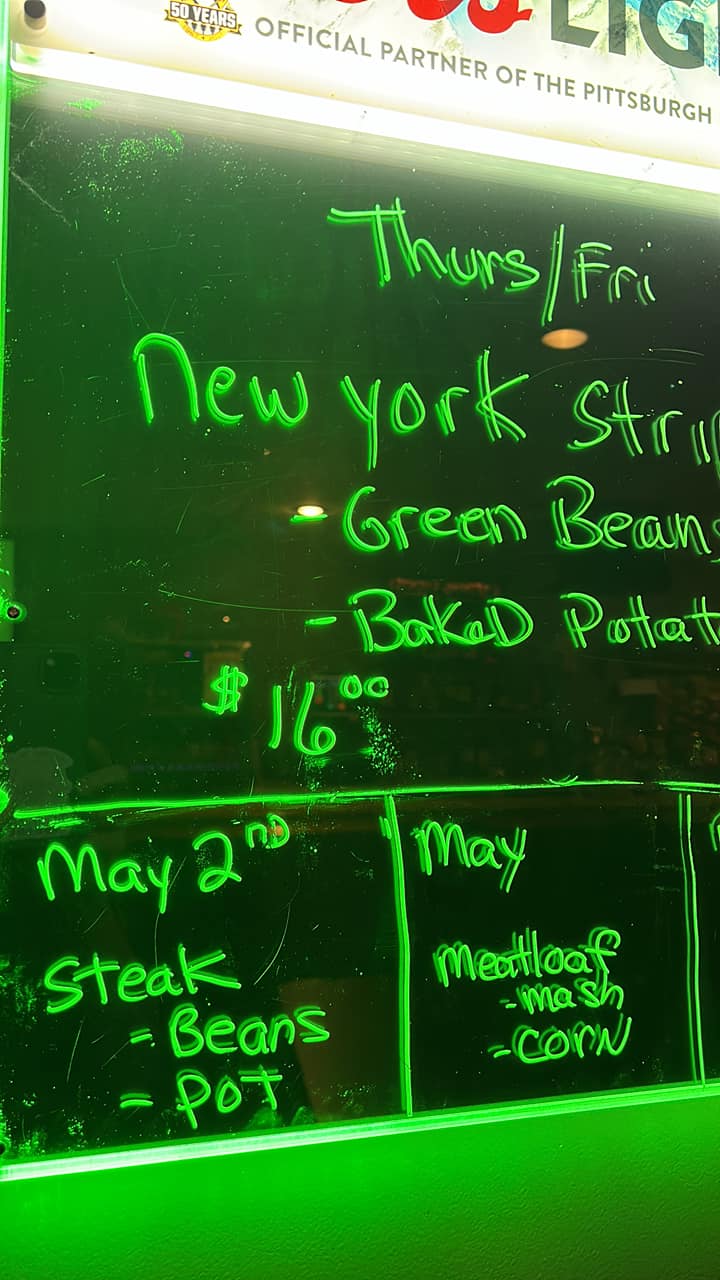 50 YEARS
LIG
OFFICIAL PARTNER OF THE PITTSBURGH
Thurs/Fri
New york Strip
Green Beans
- BakeD Potat
$ 16 00
May 2nD
Steak
= Beans
= POT
May
meatloaf
-mash
-corN